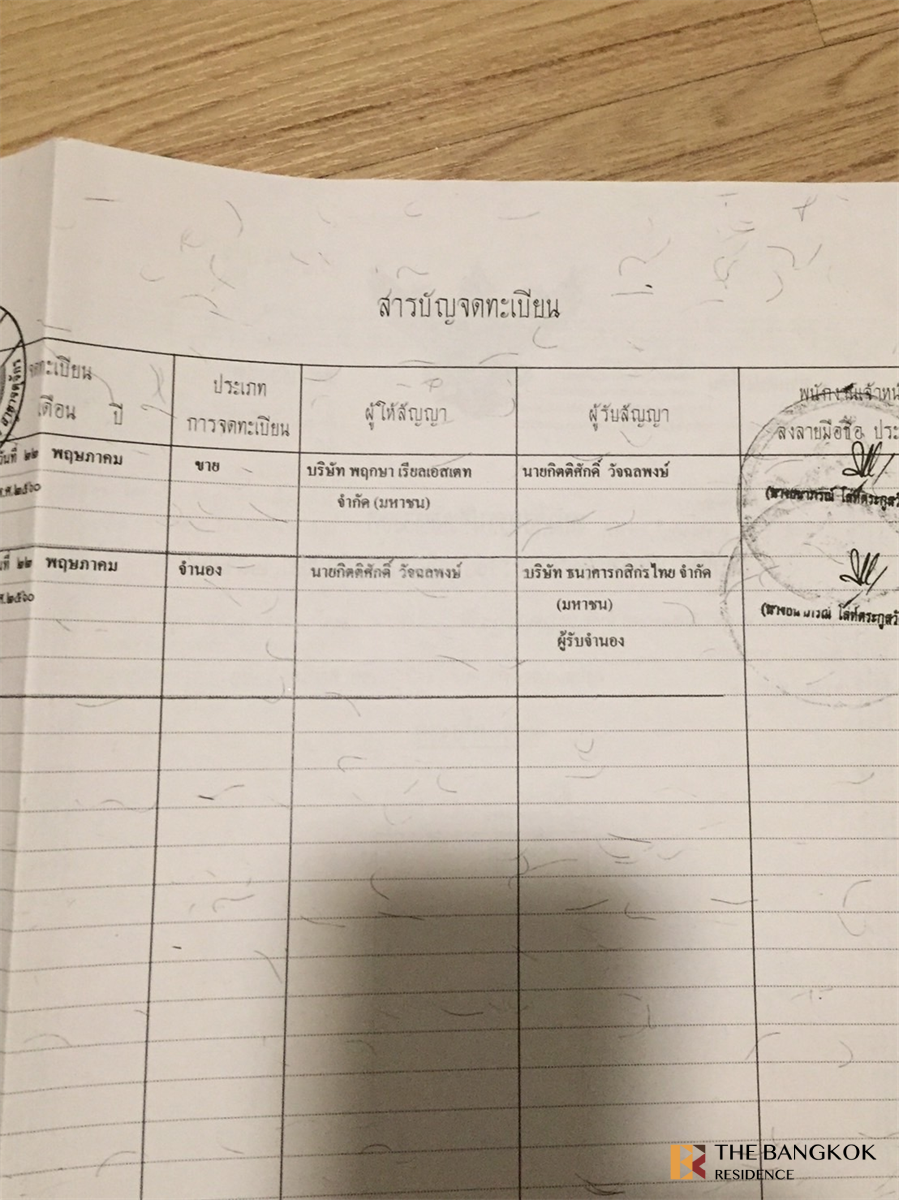 สารบัญจดทะเบียน
จดทะเบียน
เดือน ปี
ประเภท
การจดทะเบียน
ผู้ให้สัญญา
ผู้รับสัญญา
พนักงานเจ้าหน้
ลงลายมือชื่อ ประ
วันที่ ๒๒ พฤษภาคม
พ.ศ.๒๕๖๐
ขาย
บริษัท พฤกษา เรียลเอสเตท
จำกัด (มหาชน)
นายกิตติศักดิ์ วัจฉลพงษ์
ที่ ๒๒ พฤษภาคม
ศ.๒๕๖๐
จำนอง
นายกิตติศักดิ์ วัจฉลพงษ์
บริษัท ธนาคารกสิกรไทย จำกัด
(มหาชน)
ผู้รับจำนอง
THE BANGKOK
RESIDENCE